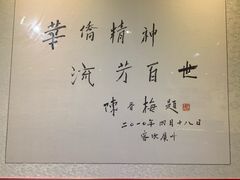 華僑精神
流芳百世
陳香梅題
二〇一〇年四月十八日